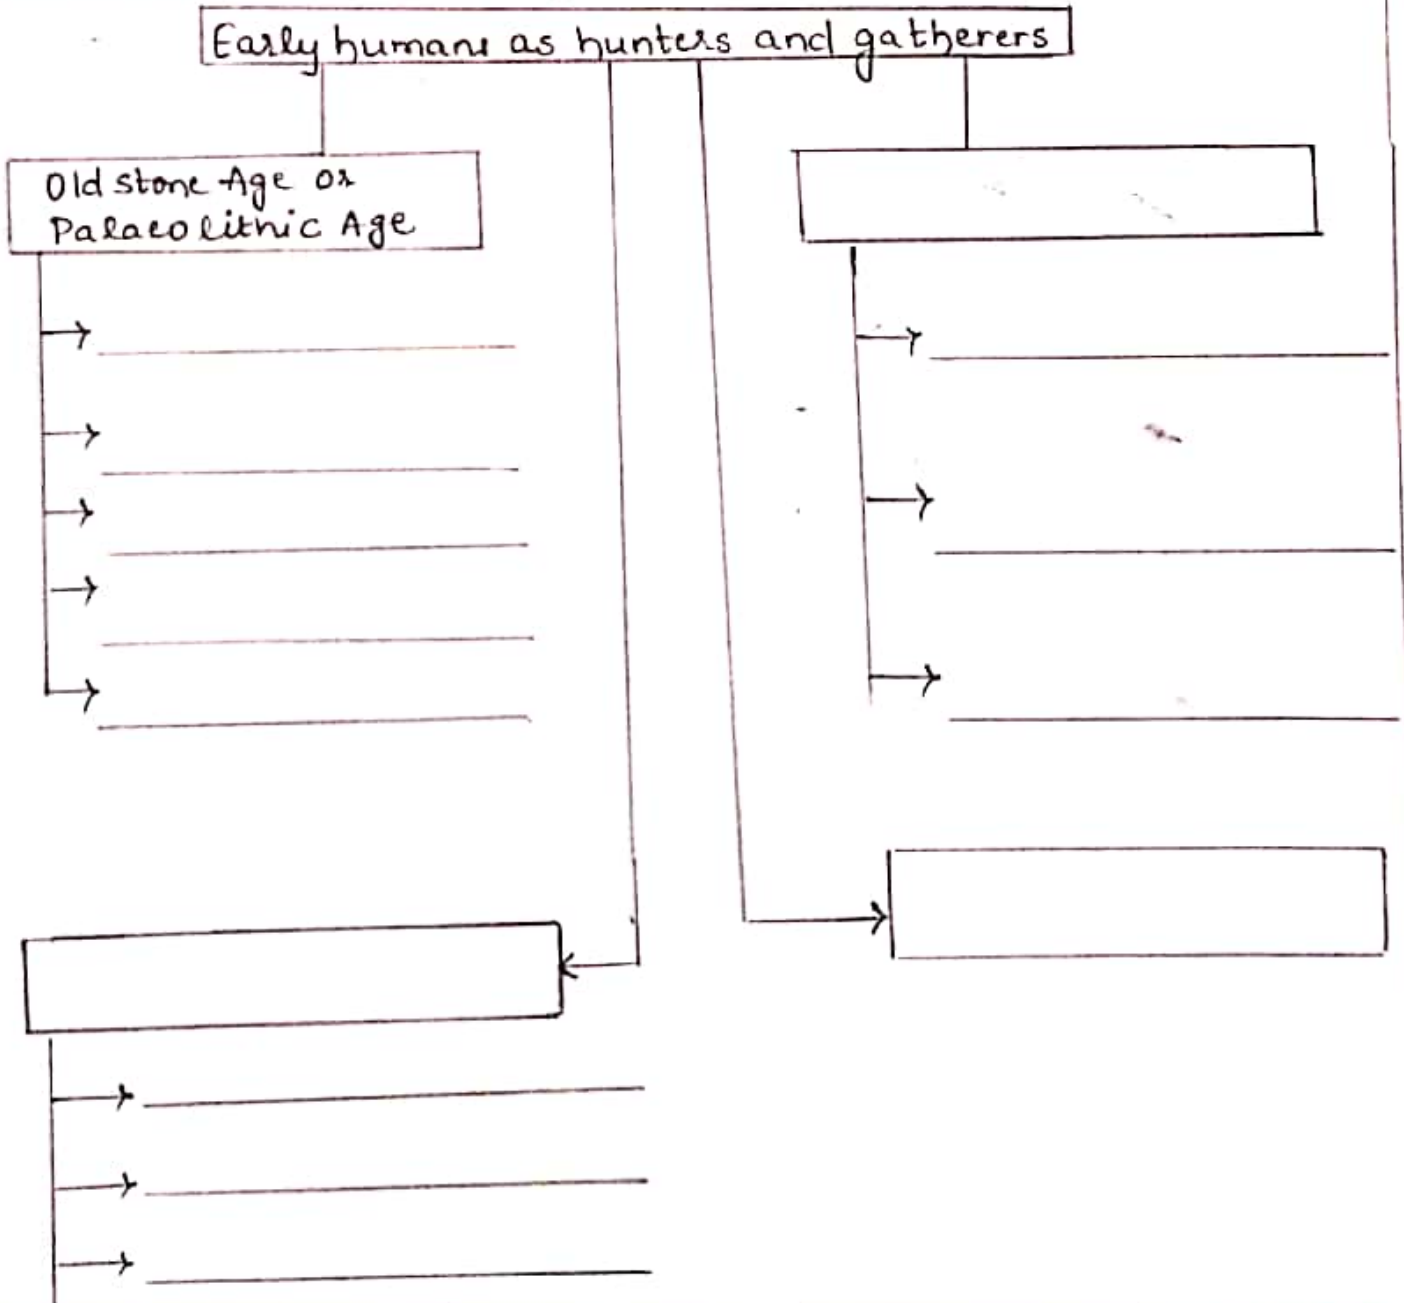 Early humans as hunters and gatherers
Old stone Age or
Palaeolithic Age